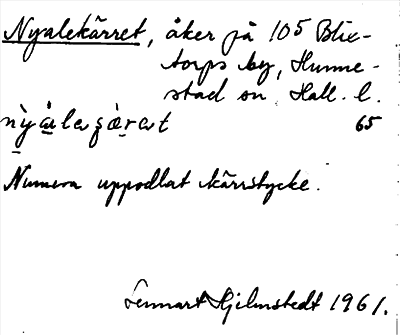 Nyalekärret, åker på 105 Blix-
torps by, Hunne-
stad sn, Hall. l.
65
Numera uppodlat kärrstycke.
Lennart Hjelmstedt 1961.